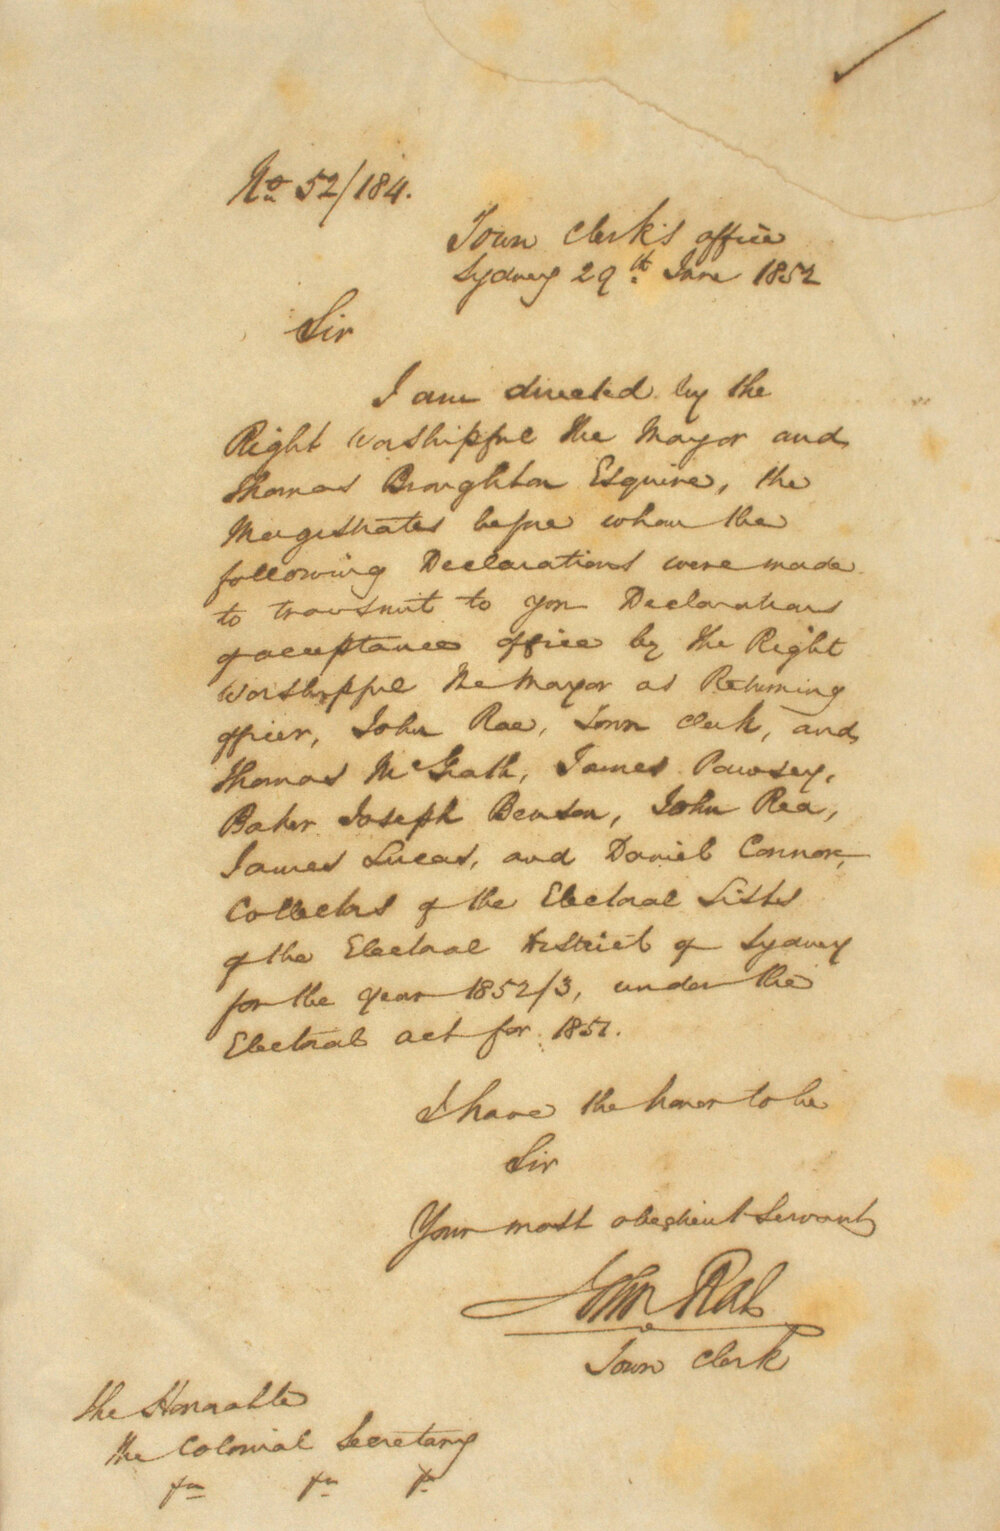 No 52/184.
Town Clerk's office
Sydney 29th June 1852
Sir
I am directed by the
Right Worshipful the Mayor and
Thomas Broughton Esquire, the
Magistrates before whom the
following Declarations were made
to transmit to you Declarations
of acceptance office by the Right
Worshipful the Mayor as Returning
officer, John Rae, Town Clerk, and
Thomas McGrath, James Pawsey,
Baker Joseph Benson, John Rea,
James Lucas, and Daniel Connor,
Collectors of the Electoral Lists
of the Electoral District of Sydney
for the year 1852/3, under the
Electoral act for 1851.
I have the honor to be
Sir
Your most obedient Servant
John Rae
Town Clerk
The Honorable
the Colonial Secretary